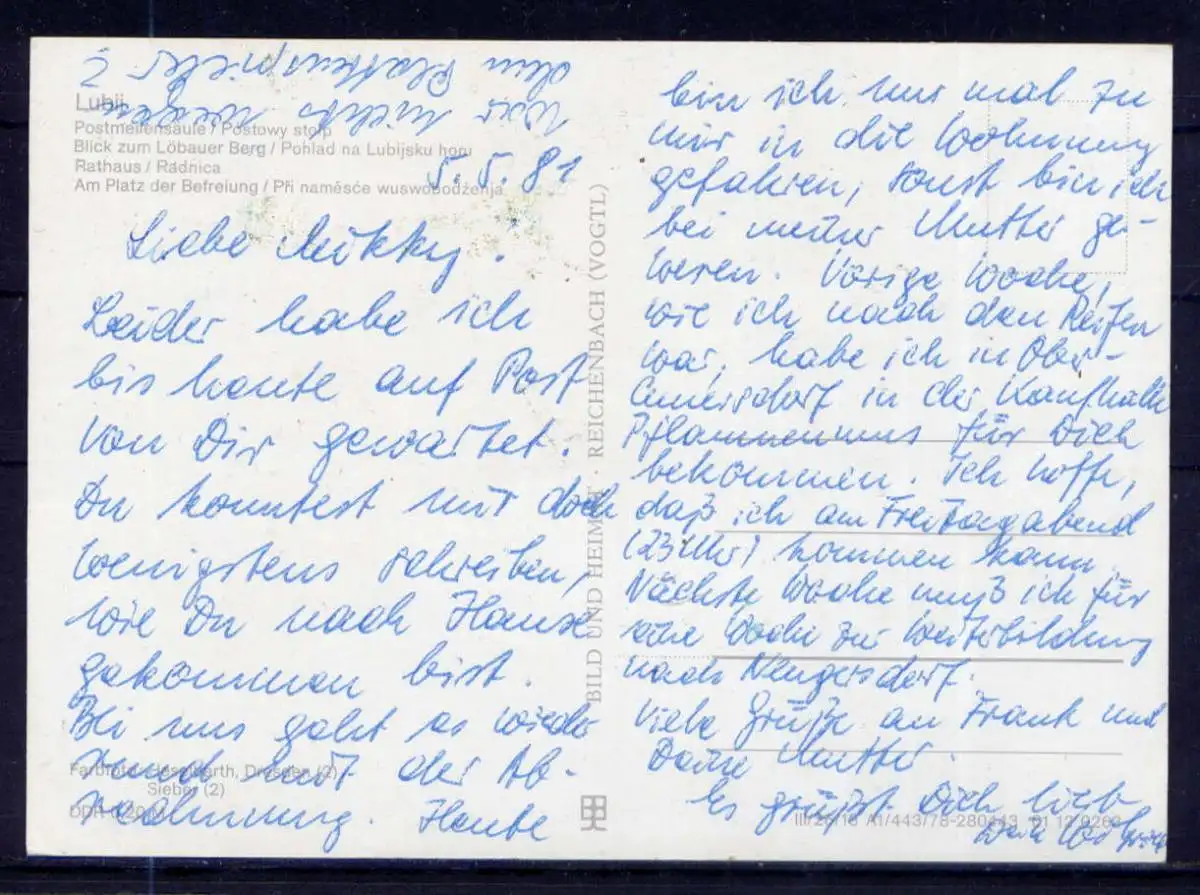 Lubij
Postmeilensäule / Postowy stołp
Blick zum Löbauer Berg / Pohlad na Lubijsku horu
Rathaus / Radnica
Am Platz der Befreiung / Při naměsće wuswobodźenja
5.5.81
Liebe Mukky.
Leider habe ich
bis heute auf Post
von Dir gewartet.
Du konntest mir doch
wenigstens schreiben,
wie Du nach Hause
gekommen bist.
Bei uns geht es wieder
mit der Ab-
rechnung. Heute
bin ich nur mal zu
mir in die Wohnung
gefahren, sonst bin ich
bei meiner Mutter ge-
wesen. Vorige Woche,
wie ich nach den Reifen
war, habe ich in Ober-
cunersdorf in der Kaufhalle
Pflaumenmus für Dich
bekommen. Ich hoffe,
daß ich am Freitagabend
(23 Uhr) kommen kann.
Nächste Woche muß ich für
eine Woche zur Weiterbildung
nach Neugersdorf.
Viele Grüße an Frank und
Deine Mutter.
Es grüßt Dich lieb
Dein
War nichts mit
dem Plattenspieler ?
BILD UND HEIMAT · REICHENBACH (VOGTL)
Farbfoto: Hesselbarth, Dresden (2)
Sieber (2)
DDR 0,20 M
III/26/16 A1/443/78-280443 01 12 0263